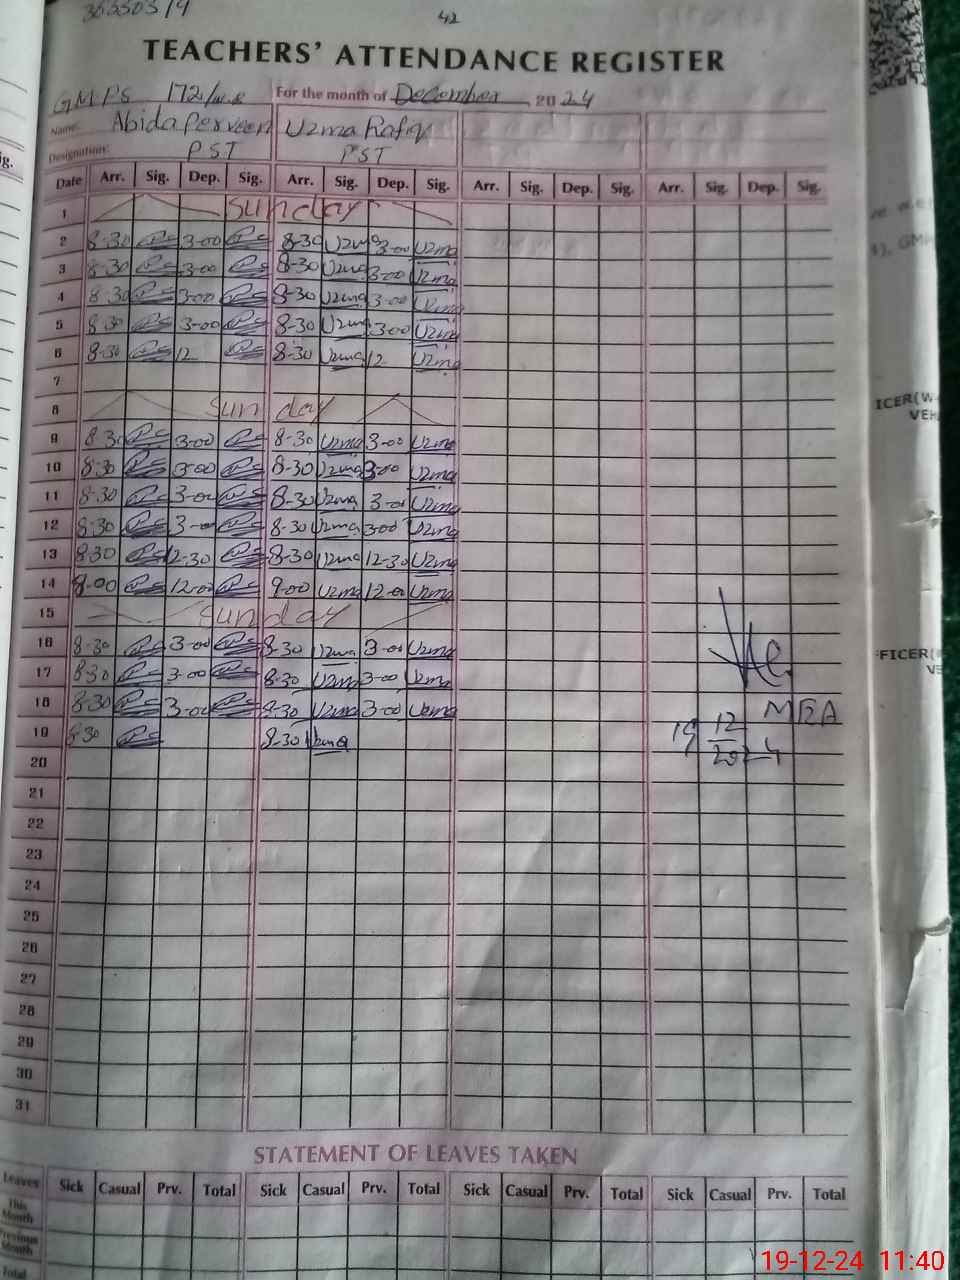 42
TEACHERS' ATTENDANCE REGISTER
GMPS 172/W.B For the month of December 2024
Name: Abida Perveen Uzma Rafiq
Designation: PST PST
Date Arr. Sig. Dep. Sig. Arr. Sig. Dep. Sig. Arr. Sig. Dep. Sig. Arr. Sig. Dep. Sig.
1 Sunday
2 8-30 3-00 8-30 Uzma 3-00 Uzma
3 8-30 3-00 8-30 Uzma 3-00 Uzma
4 8-30 3-00 8-30 Uzma 3-00 Uzma
5 8-30 3-00 8-30 Uzma 3-00 Uzma
6 8-30 12 8-30 Uzma 12 Uzma
7
8 Sunday
9 8-30 3-00 8-30 Uzma 3-00 Uzma
10 8-30 3-00 8-30 Uzma 3-00 Uzma
11 8-30 3-00 8-30 Uzma 3-00 Uzma
12 8-30 3-00 8-30 Uzma 3-00 Uzma
13 8-30 12-30 8-30 Uzma 12-30 Uzma
14 12-00 9-00 Uzma 12-00 Uzma
15 Sunday
16 8-30 3-00 8-30 Uzma 3-00 Uzma
17 8-30 3-00 8-30 Uzma 3-00 Uzma
18 8-30 3-00 8-30 Uzma 3-00 Uzma
MEA
19 8-30 8-30 Uzma 19 12 2024
20
21
22
23
24
25
26
27
28
29
30
31
STATEMENT OF LEAVES TAKEN
Leaves Sick Casual Prv. Total Sick Casual Prv. Total Sick Casual Prv. Total Sick Casual Prv. Total
This Month
Previous Month
Total
ig.
ICER(W-
VEH
FFICER(
VE
19-12-24 11:40